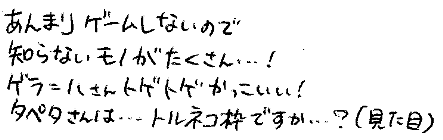 あんまりゲームしないので
知らないモノがたくさん…!
ゲラニルさんトゲトゲかっこいい!
タペタさんは…トルネコ枠ですか…?(見た目)